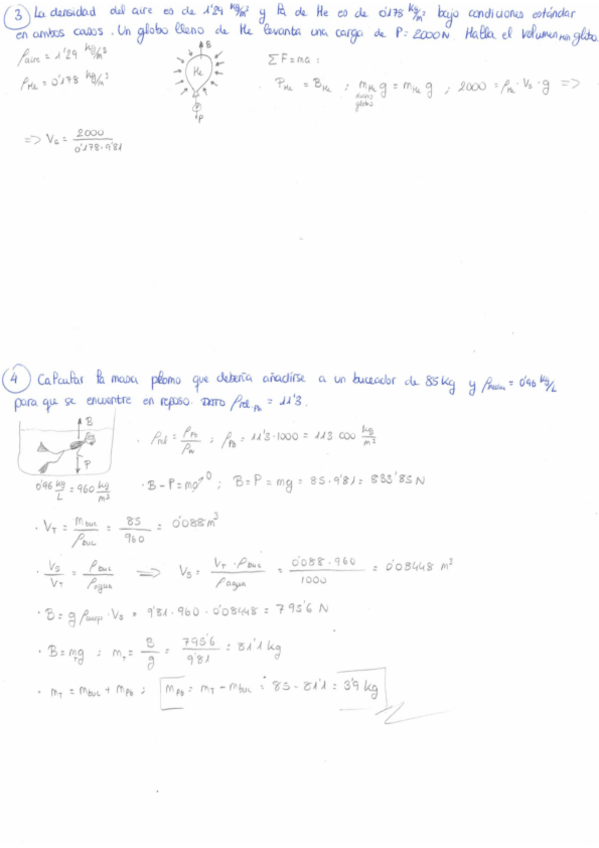 3 La densidad del aire es de 1'29 kg/m³ y la de He es de 0'178 kg/m³ bajo condiciones estándar
en ambos casos. Un globo lleno de He levanta una carga de P=2000N. Halla el volumen min globo.
ρaire = 1'29 kg/m³
ρHe = 0'178 kg/m³
B
He
P
ΣF = ma :
PHe = BHe ; mHe g = mHe g ; 2000 = ρHe · Vs · g =>
globo
=> VG = 2000 / 0'178·9'81
4 Calcular la masa plomo que debería añadirse a un buceador de 85 kg y = 0'96 kg/L
para que se encuentre en reposo. DATO ρrel Pb = 11'3.
B
P
0'96 kg/L = 960 kg/m³
· ρrel = ρPb / ρA ; ρPb = 11'3·1000 = 113 000 kg/m³
· B - P = ma 0 ; B = P = mg = 85 · 9'81 = 833'85 N
· VT = mbuc / ρbuc = 85 / 960 = 0'088 m³
· Vs / VT = ρbuc / ρagua => Vs = VT · ρbuc / ρagua = 0'088 · 960 / 1000 = 0'08448 m³
· B = g · Vs = 9'81 · 960 · 0'08448 = 795'6 N
· B = mTg ; mT = B / g = 795'6 / 9'81 = 81'1 kg
· mT = mbuc + mPb ; mPb = mT - mbuc = 85 - 81'1 = 3'9 kg